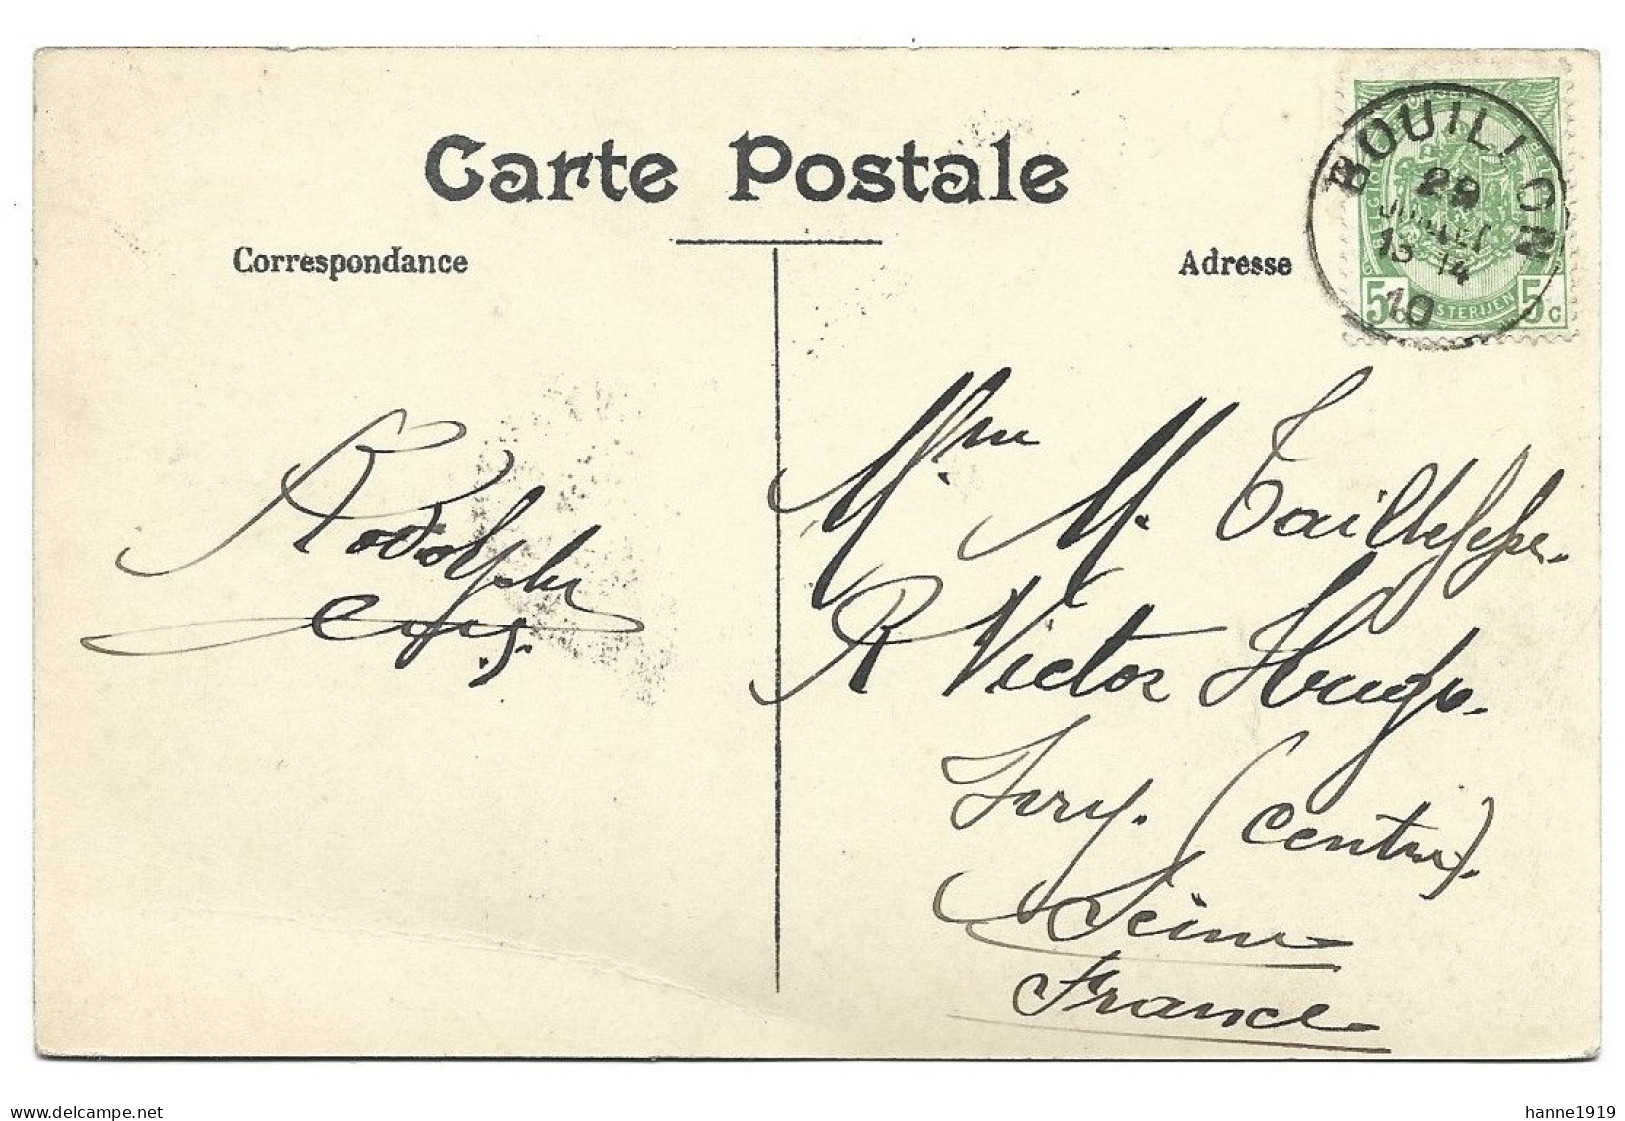 Carte Postale
Correspondance
Adresse
BOUILLON
29
JUILLET
13 14
10
5c STERIJEN 5c
Rodolphe
Mme M. Taillefesse.
R Victor Hugo.
Ivry. (Centre).
Seine
France
delcampe.net
hanne1919